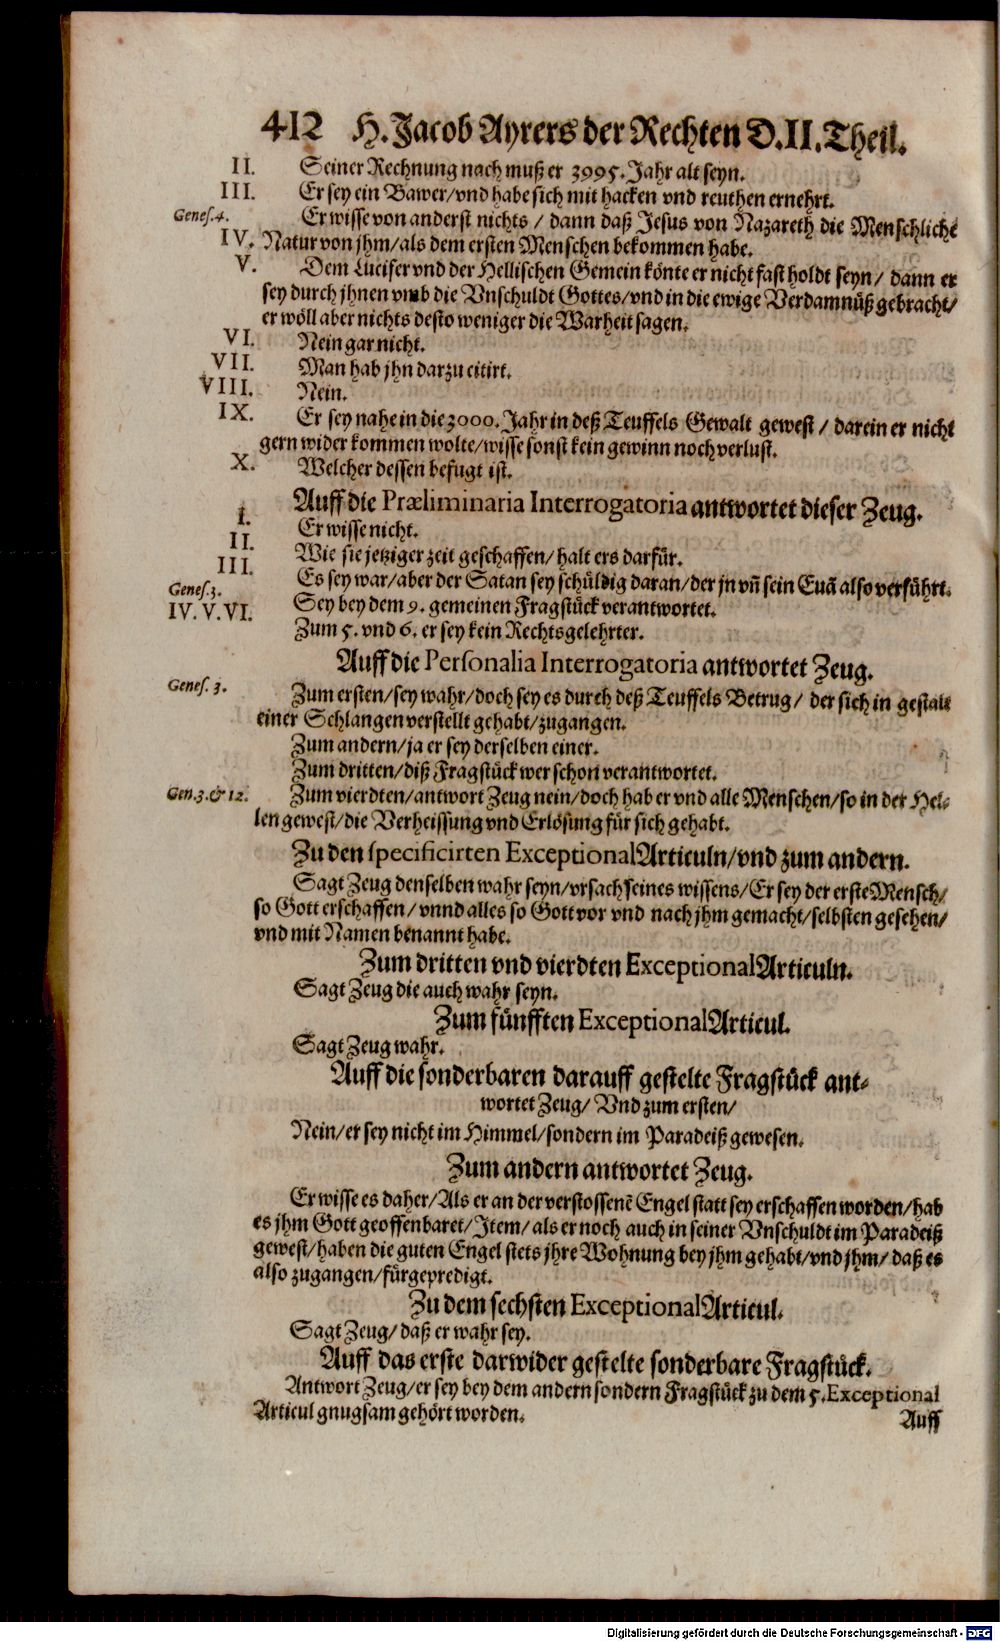 412 H. Jacob Ayrers der Rechten D. II. Theil.
II. Seiner Rechnung nach muß er 3995. Jahr alt seyn.
III. Er sey ein Bawer/vnd habe sich mit hacken vnd reuthen ernehrt.
Genes. 4. Er wisse von anderst nichts / dann daß Jesus von Nazareth die Menschliche
IV. Natur von jhm/als dem ersten Menschen bekommen habe.
V. Dem Lucifer vnd der Hellischen Gemein könte er nicht fast holdt seyn/ dann er
sey durch jhnen vmb die Vnschuldt Gottes/vnd in die ewige Verdamnüß gebracht/
er wöll aber nichts desto weniger die Warheit sagen.
VI. Nein gar nicht.
VII. Man hab jhn darzu citirt.
VIII. Nein.
IX. Er sey nahe in die 3000. Jahr in deß Teuffels Gewalt gewest / darein er nicht
gern wider kommen wolte/wisse sonst kein gewinn noch verlust.
X. Welcher dessen befugt ist.
Auff die Præliminaria Interrogatoria antwortet dieser Zeug.
I. Er wisse nicht.
II. Wie sie jetziger zeit geschaffen/halt ers darfür.
III. Es sey war/aber der Satan sey schüldig daran/der jn vñ sein Euã also verführt.
Genes. 3.
IV. V. VI. Sey bey dem 9. gemeinen Fragstück verantwortet.
Zum 5. vnd 6. er sey kein Rechtsgelehrter.
Auff die Personalia Interrogatoria antwortet Zeug.
Genes. 3. Zum ersten/sey wahr/doch sey es durch deß Teuffels Betrug/ der sich in gestalt
einer Schlangen verstellt gehabt/zugangen.
Zum andern/ja er sey derselben einer.
Zum dritten/diß Fragstück wer schon verantwortet.
Gen. 3. & 12. Zum vierdten/antwort Zeug nein/doch hab er vnd alle Menschen/so in der Hel-
len gewest/die Verheissung vnd Erlösung für sich gehabt.
Zu den specificirten Exceptional Articuln/vnd zum andern.
Sagt Zeug denselben wahr seyn/vrsach seines wissens/Er sey der erste Mensch/
so Gott erschaffen/ vnnd alles so Gott vor vnd nach jhm gemacht/selbsten gesehen/
vnd mit Namen benannt habe.
Zum dritten vnd vierdten Exceptional Articuln.
Sagt Zeug die auch wahr seyn.
Zum fünfften Exceptional Articul.
Sagt Zeug wahr.
Auff die sonderbaren darauff gestelte Fragstück ant-
wortet Zeug/ Vnd zum ersten/
Nein/er sey nicht im Himmel/sondern im Paradeiß gewesen.
Zum andern antwortet Zeug.
Er wisse es daher/Als er an der verstossenẽ Engel statt sey erschaffen worden/hab
es jhm Gott geoffenbaret/Item/als er noch auch in seiner Vnschuldt im Paradeiß
gewest/haben die guten Engel stets jhre Wohnung bey jhm gehabt/vnd jhm/ daß es
also zugangen/fürgepredigt.
Zu dem sechsten Exceptional Articul.
Sagt Zeug/daß er wahr sey.
Auff das erste darwider gestelte sonderbare Fragstück.
Antwort Zeug/er sey bey dem andern sondern Fragstück zu dem 5. Exceptional
Articul gnugsam gehört worden.
Auff
Digitalisierung gefördert durch die Deutsche Forschungsgemeinschaft - DFG